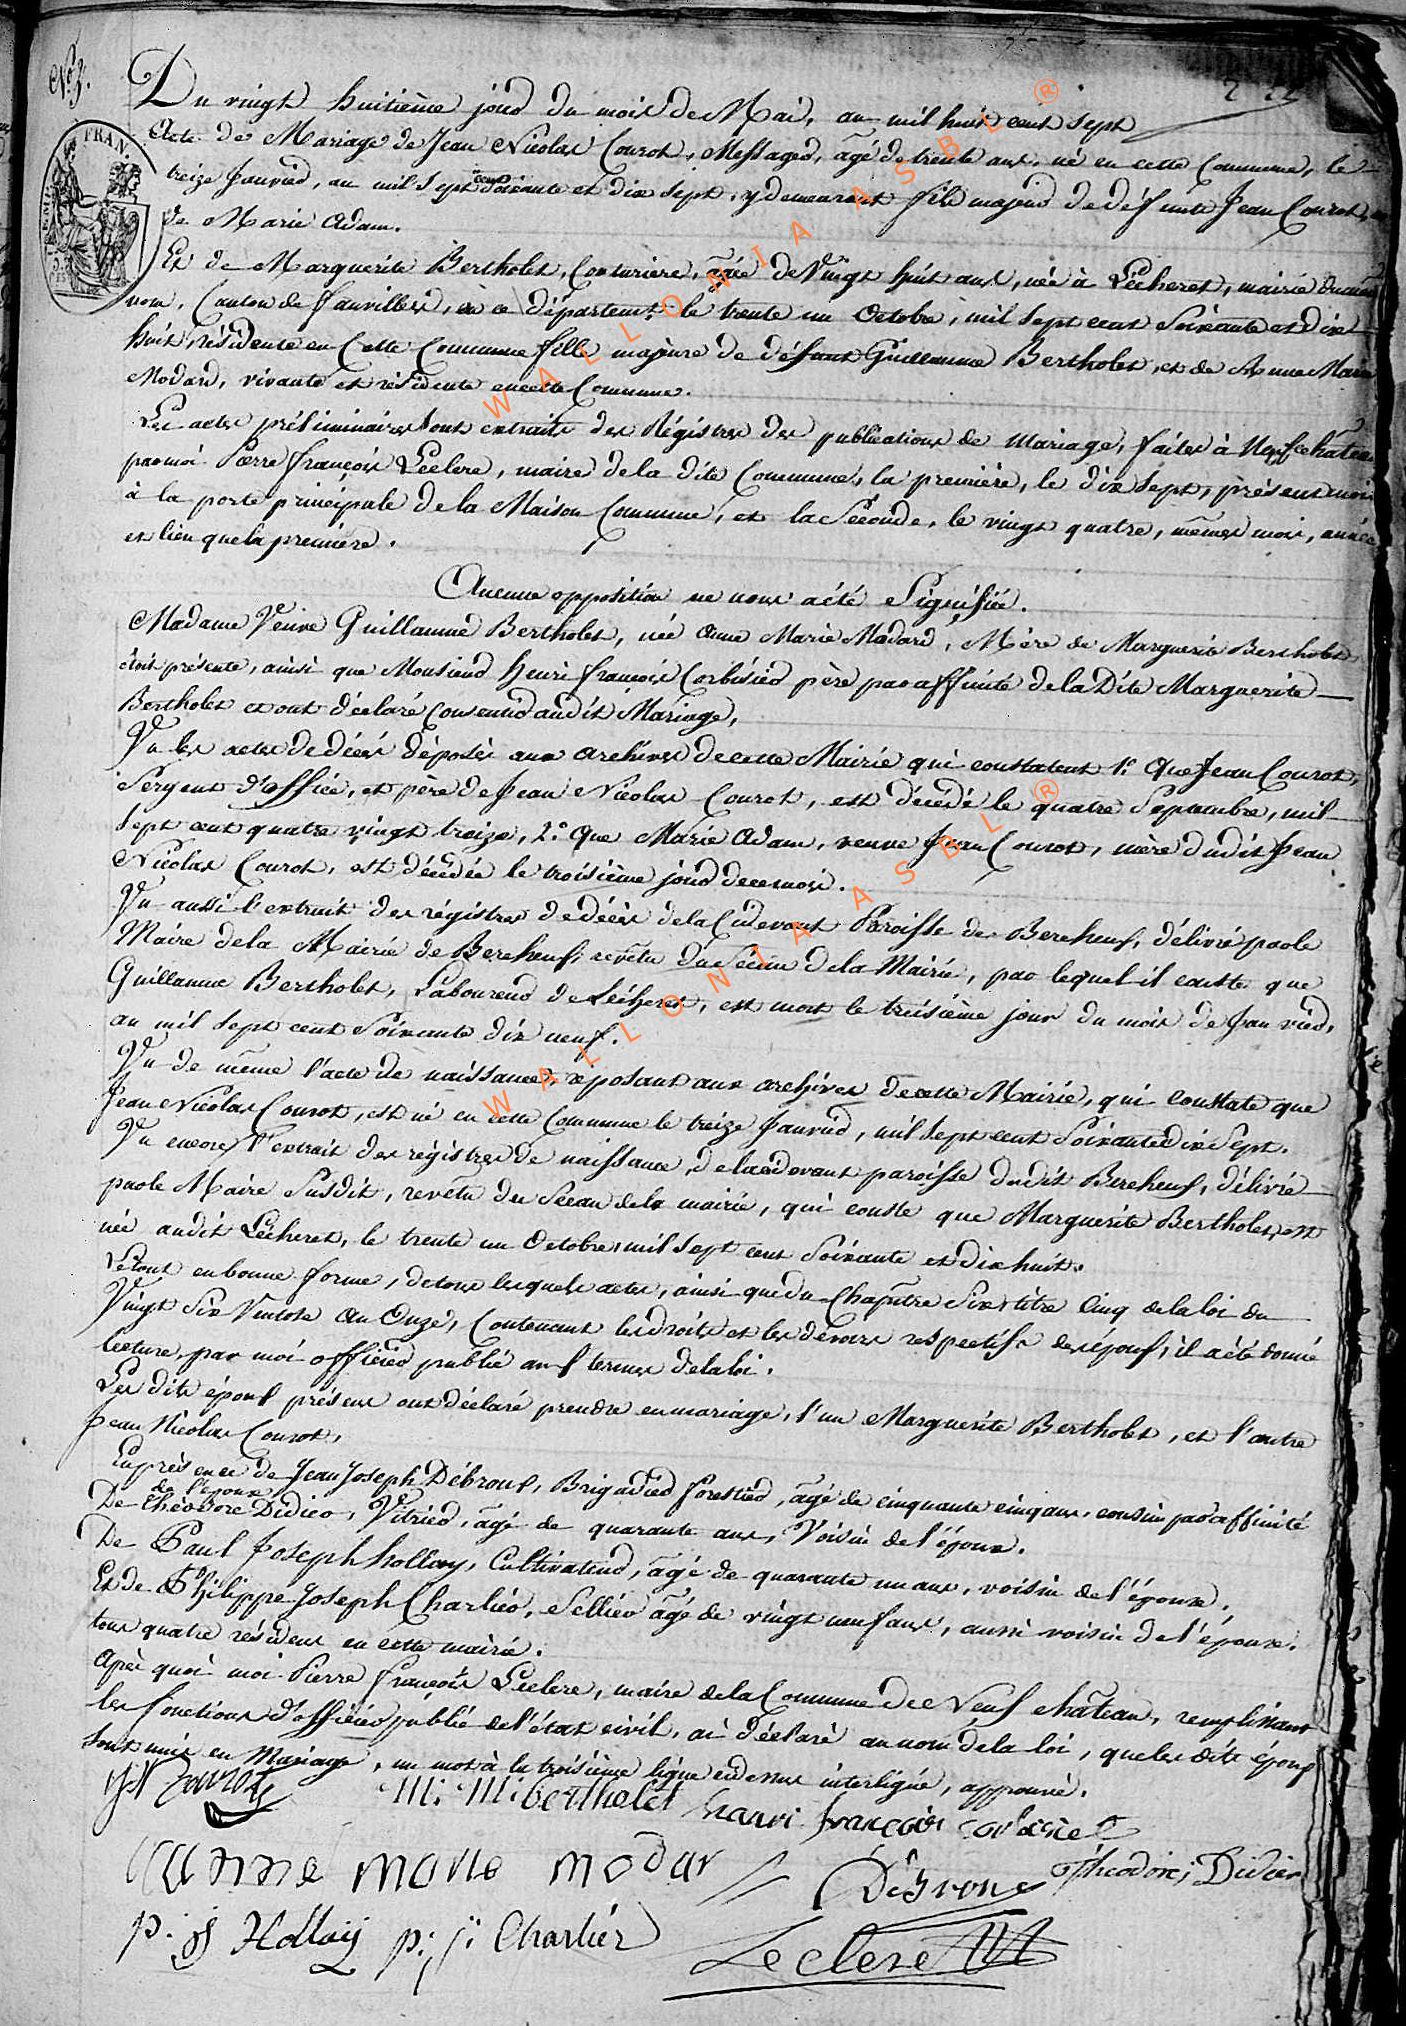 N.° 3.
Du vingt huitième jour du mois de Mai, an mil huit cent sept
Acte de Mariage de Jean Nicolas Courot, Messager, agé de trente ans, né en cette Commune, le
treize Janvier, an mil sept cent soixante et dix sept, y demeurant fils majeur de défunts Jean Courot, et
de Marie Adam.
Et de Marguerite Bertholet, Couturière, agée de Vingt huit ans, née à Lécheret, mairie du même
nom, Canton de fauvillers, en ce départemt. le trente un Octobre, mil sept cent Soixante et dix
huit, résidente en Cette Commune fille majeure de défunt Guillaume Bertholet, et de Anne Marie
Modard, vivante et résidente en cette Commune.
Les actes préliminaires sont extraits des Régistres des publications de Mariage, faites à Neufchateau
par moi Pierre françois Leclere, maire de la dite Commune, la première, le dix sept, présent mois
à la porte principale de la Maison Commune, et la Seconde, le vingt quatre, mêmes mois, année
et lieu que la première.
Aucune opposition ne nous a été Signifiée.
Madame Veuve Guillaume Bertholet, née Anne Marie Modard, Mère de Marguerite Bertholet,
étoit présente, ainsi que Monsieur henri françois Corbisier père par affinité de la Dite Marguerite
Bertholet et ont déclaré Consentir audit Mariage,
Vu les actes de décès déposés aux archives de cette Mairie qui constatent 1.° Que Jean Courot,
Sergent d'office, et père de Jean Nicolas Courot, est décédé le quatre Septembre, mil
sept cent quatre vingt treize, 2.° que Marie Adam, veuve Jean Courot, mère dudit Jean
Nicolas Courot, est décédée le troisième jour de ce mois.
Vu aussi l'extrait des régistres de décès de la Cidevant Paroisse de Bercheux, délivré par le
Maire de la Mairie de Bercheux, revêtu du Sceau de la Mairie, par lequel il conste que
Guillaume Bertholet, Laboureur de Lécheret, est mort le treisième jour du mois de Janvier,
an mil sept cent Soixante dix neuf.
Vu de même l'acte de naissance, reposant aux archives de cette Mairie, qui Constate que
Jean Nicolas Courot, est né en cette Commune le treize Janvier, mil sept cent Soixante dix Sept.
Vu encore l'extrait des régistres de naissance, de la cidevant paroisse dudit Bercheux, délivré
par le Maire Susdit, revêtu du Sceau de la mairie, qui conste que Marguerite Bertholet, est
née audit Lécheret, le trente un Octobre, mil sept cent Soixante et dix huit.
Le tout en bonne forme, de tous lesquels actes, ainsi que du Chapitre Six, titre Cinq de la loi du
Vingt Six Ventose An Onze, Contenant les droits et les devoirs respectifs des époux, il a été donné
lecture, par moi officier publié aux termes de la loi.
Les dits époux présens ont déclaré prendre en mariage, l'un Marguerite Bertholet, et l'autre
Jean Nicolas Courot,
En présence de Jean Joseph Débroux, Brigadier forestier, agé de cinquante cinq ans, cousin par affinité
de l'époux
De Théodore Didier, Vitrier, agé de quarante ans, Voisin de l'époux.
De Paul Joseph hollay, Cultivateur, agé de quarante un ans, voisin de l'épouse.
Et de Philippe Joseph Charlier, Sellier agé de vingt neuf ans, aussi voisin de l'épouse.
tous quatre résidens en cette mairie.
Après quoi moi Pierre françois Leclere, maire de la Commune de Neufchâteau, remplissant
les fonctions d'officier publié de l'état civil, ai déclaré au nom de la loi, que les dits époux
sont unis en Mariage, un mot à la troisième ligne cidessus interligné, approuvé.
jN Courot M: M: bertholet henri françois corbisier
anne marie modar Débroux Théodore Didier
p. j Hollay p: j: Charlier Leclere
WALLONIA ASBL ®
WALLONIA ASBL ®